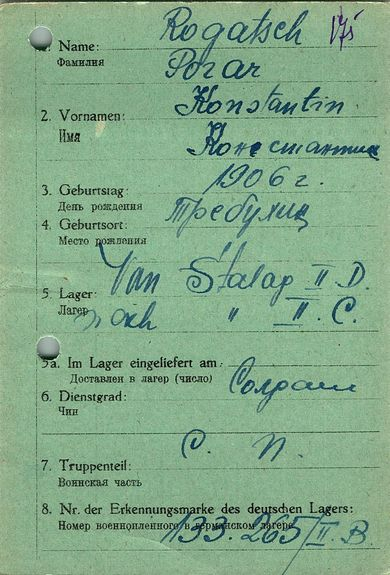 Rogatsch 175
1. Name:
Фамилия Рогач
2. Vornamen: Konstantin
Имя Константин
3. Geburtstag: 1906 г.
День рождения
4. Geburtsort: Требухин
Место рождения
5. Lager: Van Stalag II D.
Лагер nach " II C.
5a. Im Lager eingeliefert am:
Доставлен в лагер (число)
6. Dienstgrad: Солдат
Чин
7. Truppenteil: С. П.
Воинская часть
8. Nr. der Erkennungsmarke des deutschen Lagers:
Номер военнопленного в германском лагере
133.265/II.B